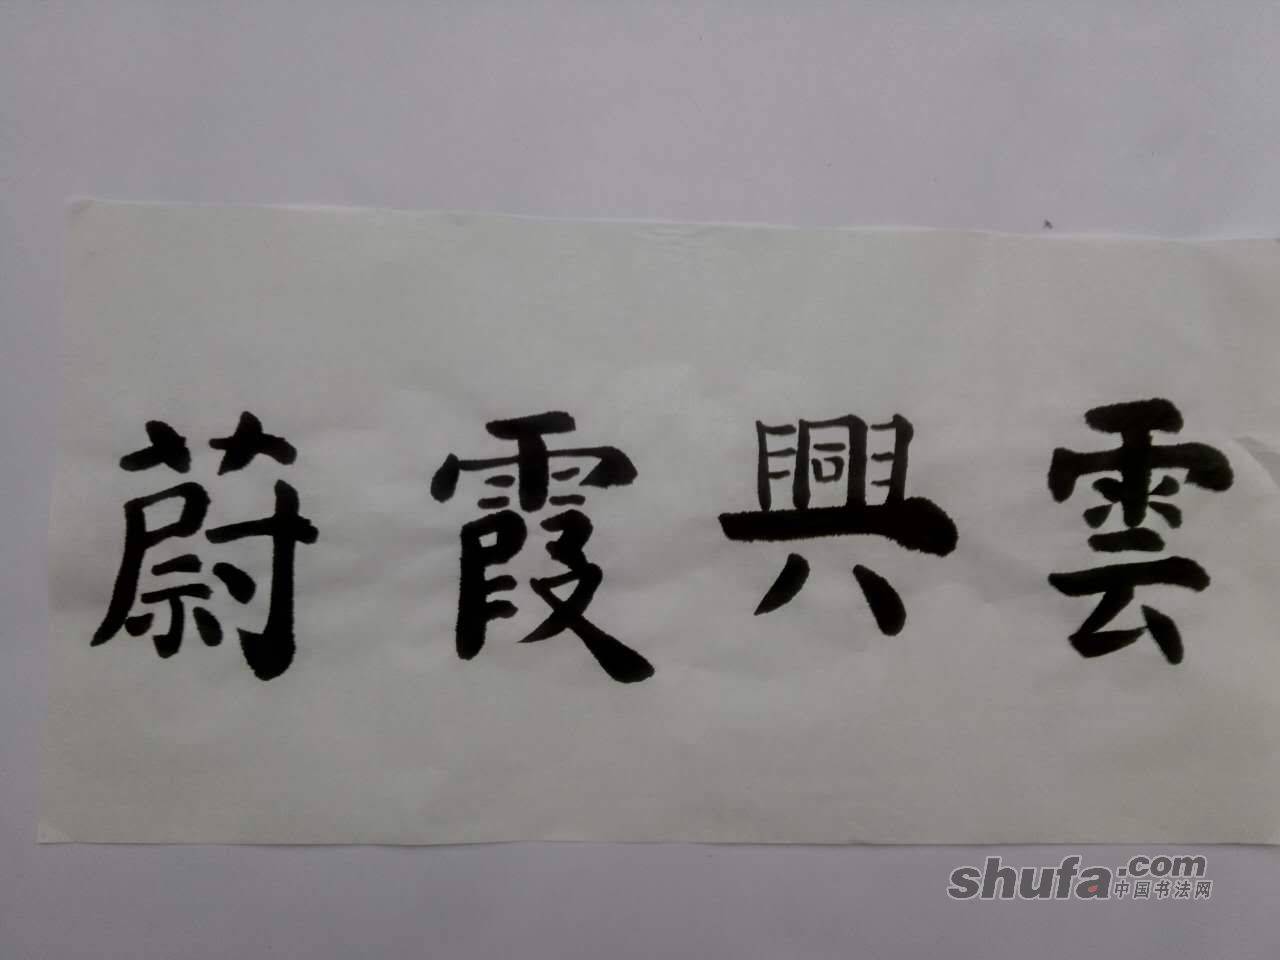 雲興霞蔚
shufa.com
中国书法网